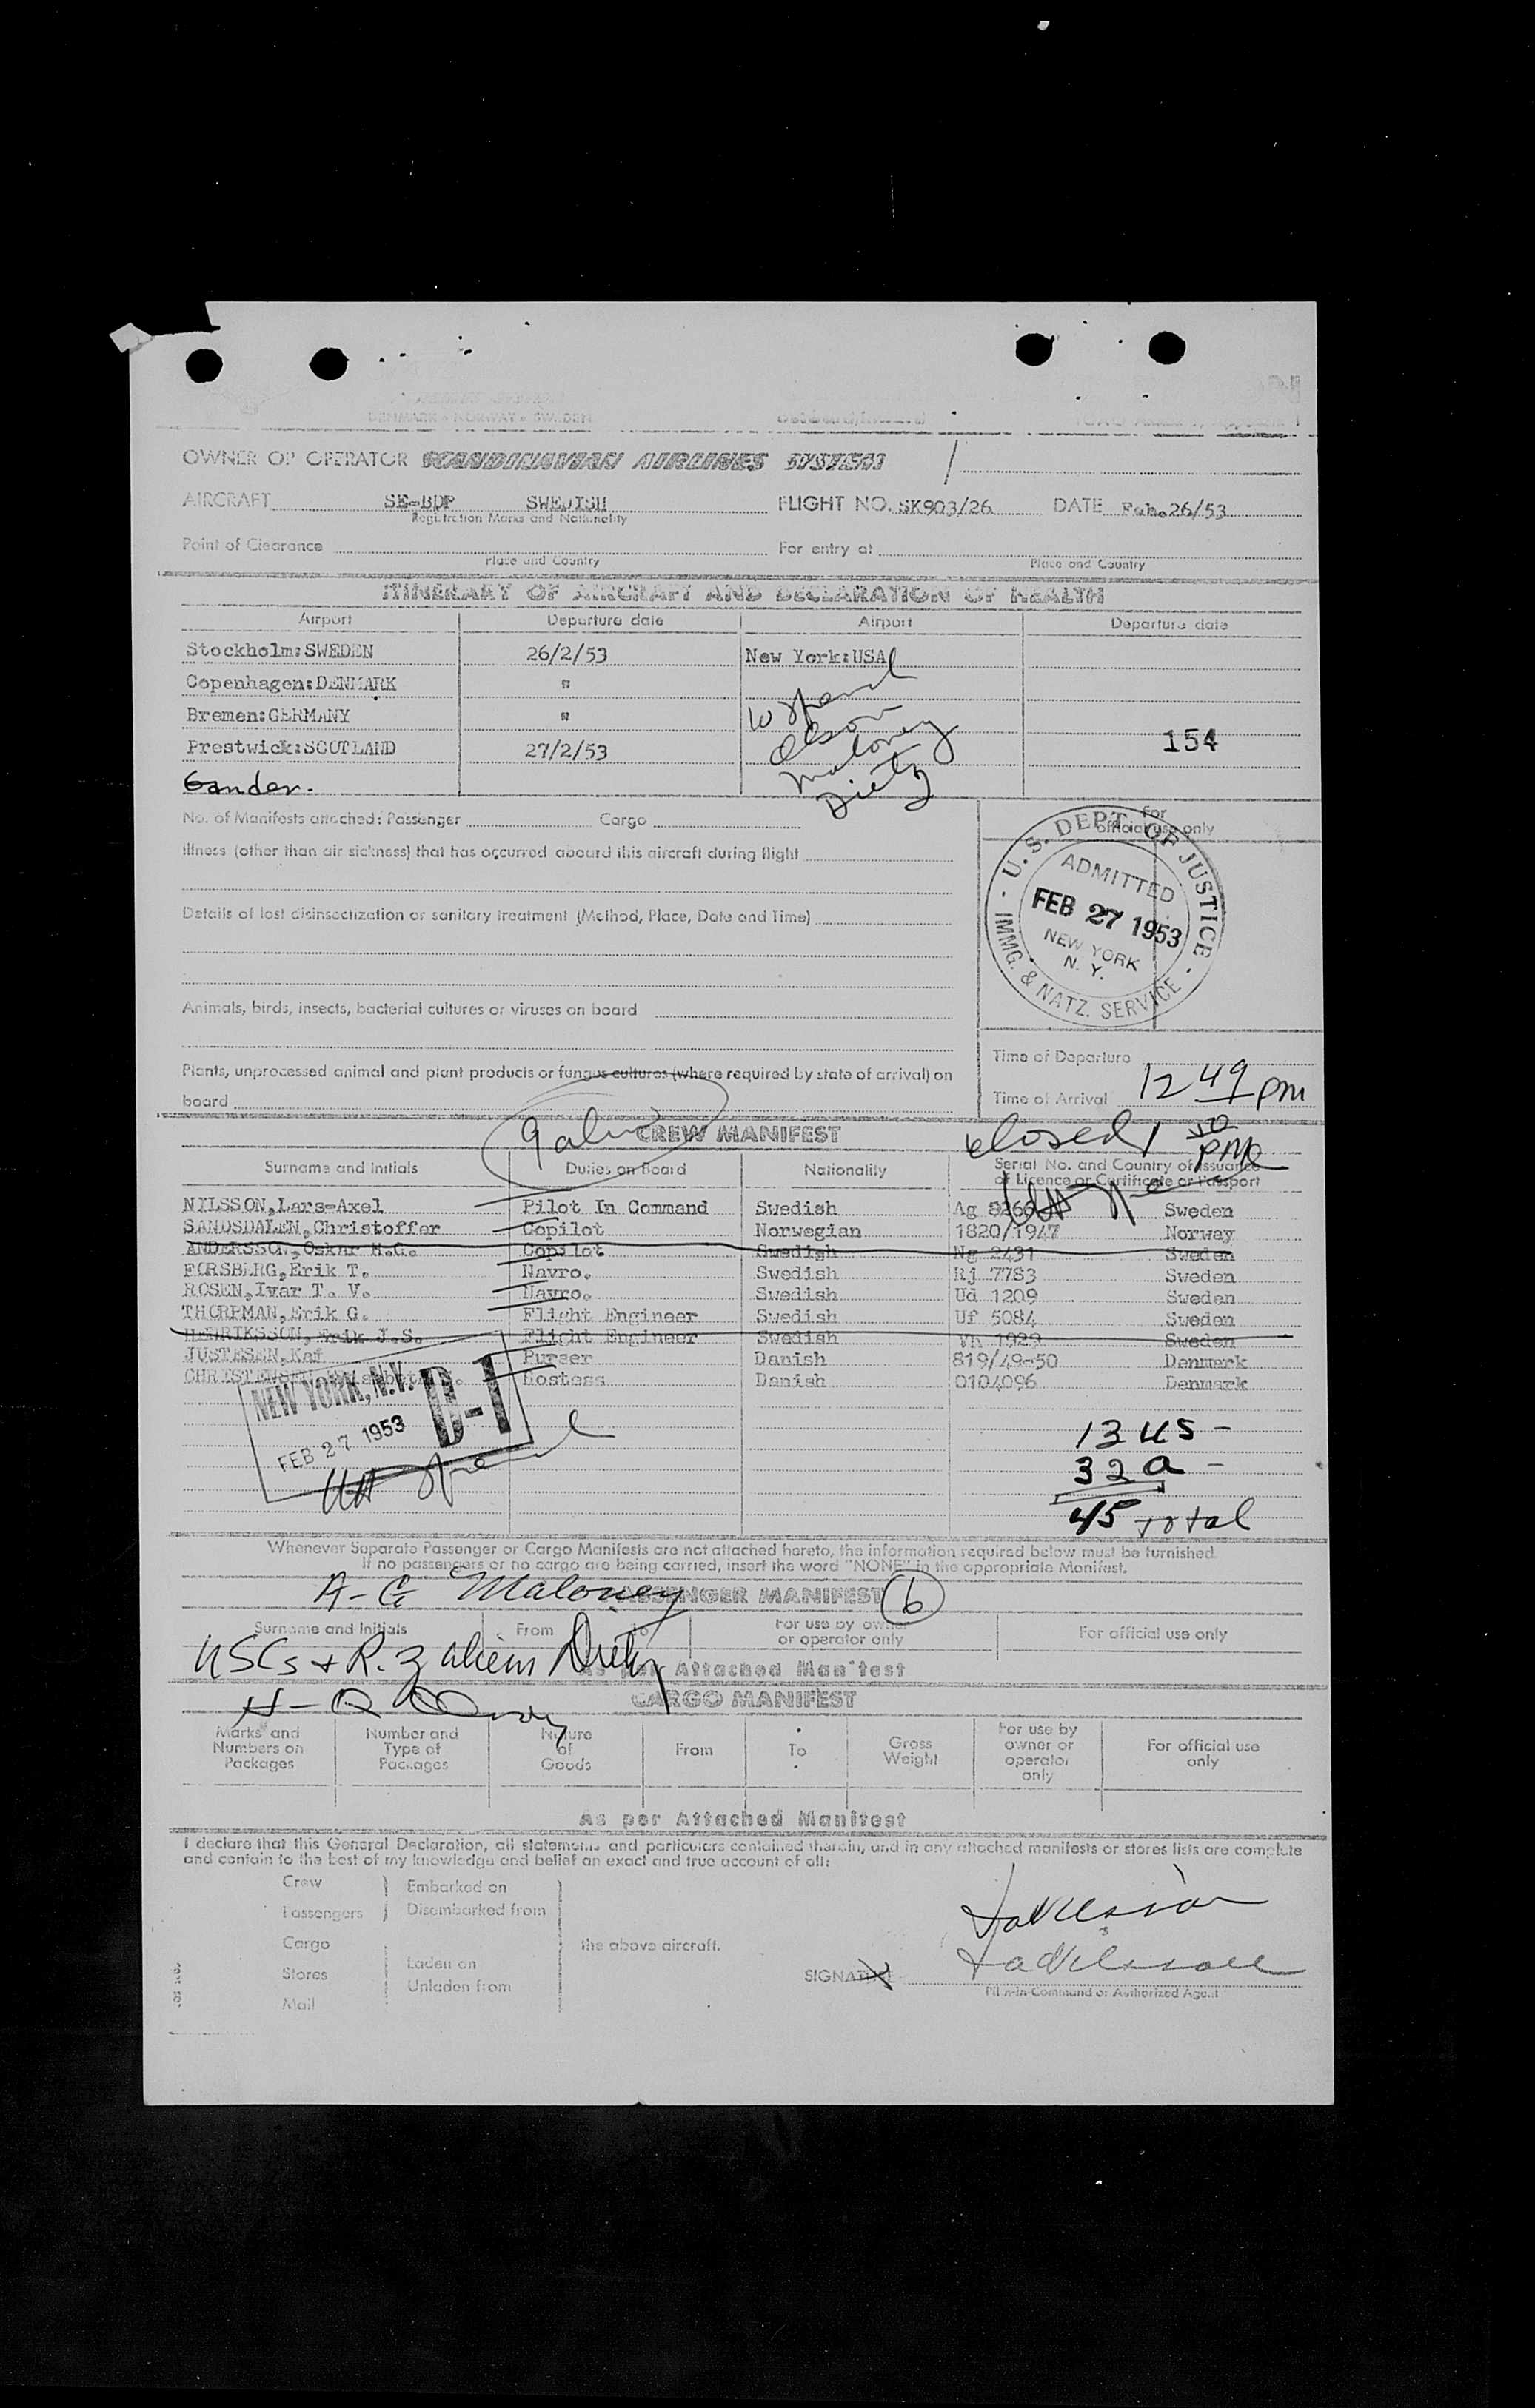 DENMARK - NORWAY - SWEDEN
OWNER OR OPERATOR SCANDINAVIAN AIRLINES SYSTEM
AIRCRAFT SE-BDP SWEDISH FLIGHT NO. SK903/26 DATE Feb.26/53
Registration Marks and Nationality
Point of Clearance For entry at
Place and Country Place and Country
ITINERARY OF AIRCRAFT AND DECLARATION OF HEALTH
Airport Departure date Airport Departure date
Stockholm:SWEDEN 26/2/53 New York:USA
Copenhagen:DENMARK "
Bremen:GERMANY "
Prestwick:SCOTLAND 27/2/53
Gander.
Olson
Maloney
Dietz
154
No. of Manifests attached: Passenger Cargo
For official use only
Illness (other than air sickness) that has occurred aboard this aircraft during flight
Details of last disinsectization or sanitary treatment (Method, Place, Date and Time)
Animals, birds, insects, bacterial cultures or viruses on board
Plants, unprocessed animal and plant products or fungus cultures (where required by state of arrival) on
board
U. S. DEPT. OF JUSTICE
ADMITTED
FEB 27 1953
NEW YORK
N. Y.
IMMG. & NATZ. SERVICE
Time of Departure
Time of Arrival 12 49 pm
closed 1 50 PM
CREW MANIFEST
Surname and Initials Duties on Board Nationality Serial No. and Country of Issuance
of Licence or Certificate or Passport
NILSSON,Lars-Axel Pilot In Command Swedish Ag Sweden
SANDSDALEN,Christoffer Copilot Norwegian 1820/1947 Norway
ANDERSSON,Oskar H.G. Copilot Swedish Ng 2431 Sweden
FORSBERG,Erik T. Navro. Swedish Rj 7783 Sweden
ROSEN,Ivar T. V. Navro. Swedish Ud 1209 Sweden
THORPMAN,Erik G. Flight Engineer Swedish Uf 5084 Sweden
HENRIKSSON,Erik J.S. Flight Engineer Swedish Vh 1929 Sweden
JUSTESEN,Kaj Purser Danish 819/49-50 Denmark
Hostess Danish 0104096 Denmark
NEW YORK, N.Y. D-1
FEB 27 1953
13 US -
32 a -
45 total
Whenever Separate Passenger or Cargo Manifests are not attached hereto, the information required below must be furnished.
If no passengers or no cargo are being carried, insert the word "NONE" in the appropriate Manifest.
A-G Maloney
PASSENGER MANIFEST 6
Surname and Initials From To For use by owner
or operator only For official use only
USCs + R. Z aliens Dietz
As per Attached Manifest
CARGO MANIFEST
Marks and
Numbers on
Packages
Number and
Type of
Packages
Nature
of
Goods
From
To
Gross
Weight
For use by
owner or
operator
only
For official use
only
As per Attached Manifest
I declare that this General Declaration, all statements and particulars contained therein, and in any attached manifests or stores lists are complete
and contain to the best of my knowledge and belief an exact and true account of all:
Crew Embarked on
Passengers Disembarked from
Cargo the above aircraft.
Stores Laden on
Unladen from
Mail
SIGNATURE
Pilot-in-Command or Authorized Agent